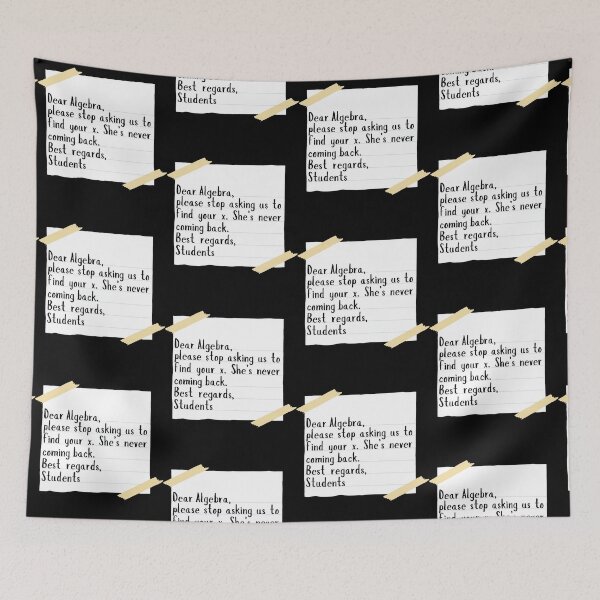 Dear Algebra,
please stop asking us to
find your x. She's never
coming back.
Best regards,
Students
Best regards,
Students
Dear Algebra,
please stop asking us to
find your x. She's never
coming back.
Best regards,
Students
Best regards,
Students
Dear Algebra,
please stop asking us to
find your x. She's never
coming back.
Best regards,
Students
Dear Algebra,
please stop asking us to
find your x. She's never
coming back.
Best regards,
Students
Dear Algebra,
please stop asking us to
find your x. She's never
coming back.
Best regards,
Students
Dear Algebra,
please stop asking us to
find your x. She's never
coming back.
Best regards,
Students
Dear Algebra,
please stop asking us to
find your x. She's never
coming back.
Best regards,
Students
Dear Algebra,
please stop asking us to
find your x. She's never
coming back.
Best regards,
Students
Dear Algebra,
please stop asking us to
find your x. She's never
coming back.
Best regards,
Students
Dear Algebra,
please stop asking us to
find your x. She's never
coming back.
Best regards,
Students
Dear Algebra,
please stop asking us to
Dear Algebra,
please stop asking us to